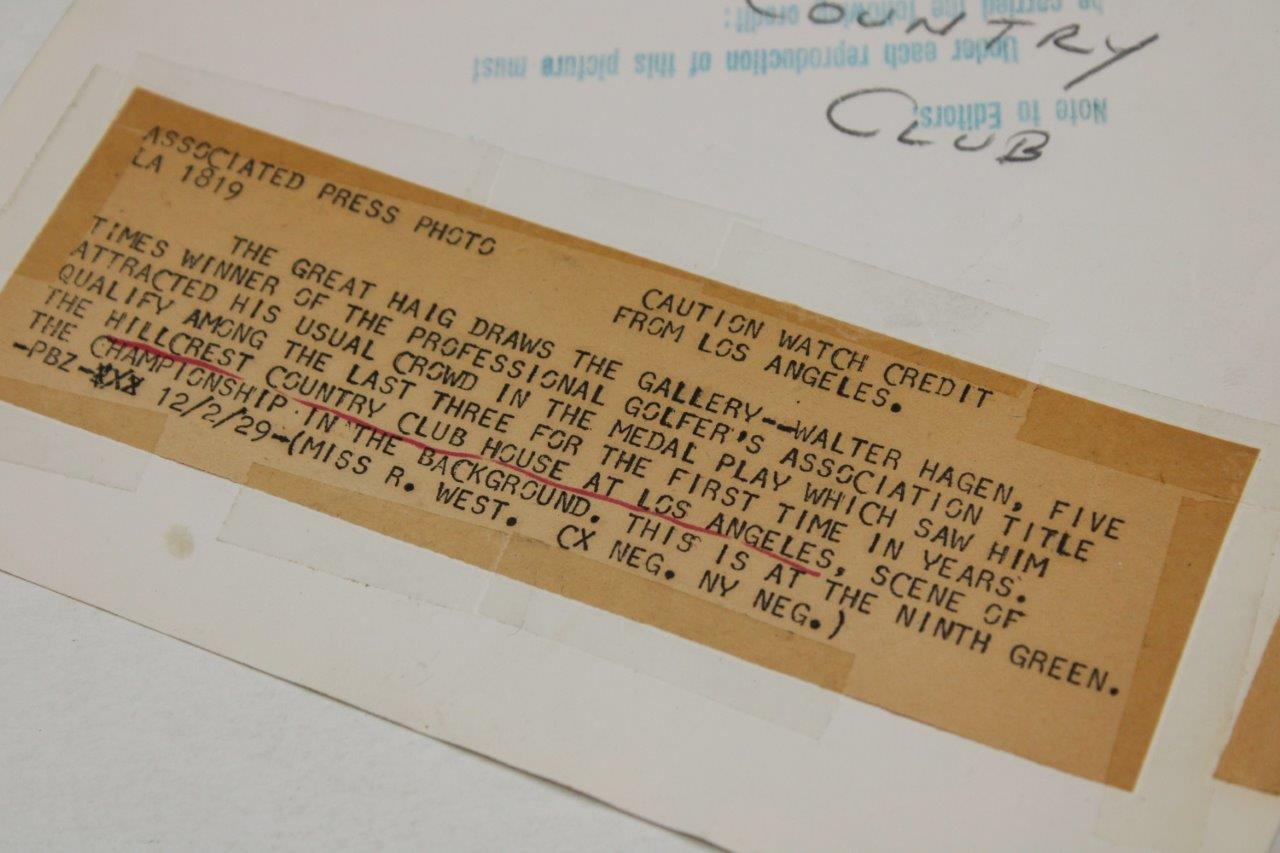 COUNTRY
CLUB
Note to Editors:
Under each reproduction of this picture must
be carried the following credit:
ASSOCIATED PRESS PHOTO
LA 1819
CAUTION WATCH CREDIT
FROM LOS ANGELES.
THE GREAT HAIG DRAWS THE GALLERY--WALTER HAGEN, FIVE
TIMES WINNER OF THE PROFESSIONAL GOLFER'S ASSOCIATION TITLE
ATTRACTED HIS USUAL CROWD IN THE MEDAL PLAY WHICH SAW HIM
QUALIFY AMONG THE LAST THREE FOR THE FIRST TIME IN YEARS.
THE HILLCREST COUNTRY CLUB HOUSE AT LOS ANGELES, SCENE OF
THE CHAMPIONSHIP IN THE BACKGROUND. THIS IS AT THE NINTH GREEN.
-PBZ- 12/2/29-(MISS R. WEST. CX NEG. NY NEG.)